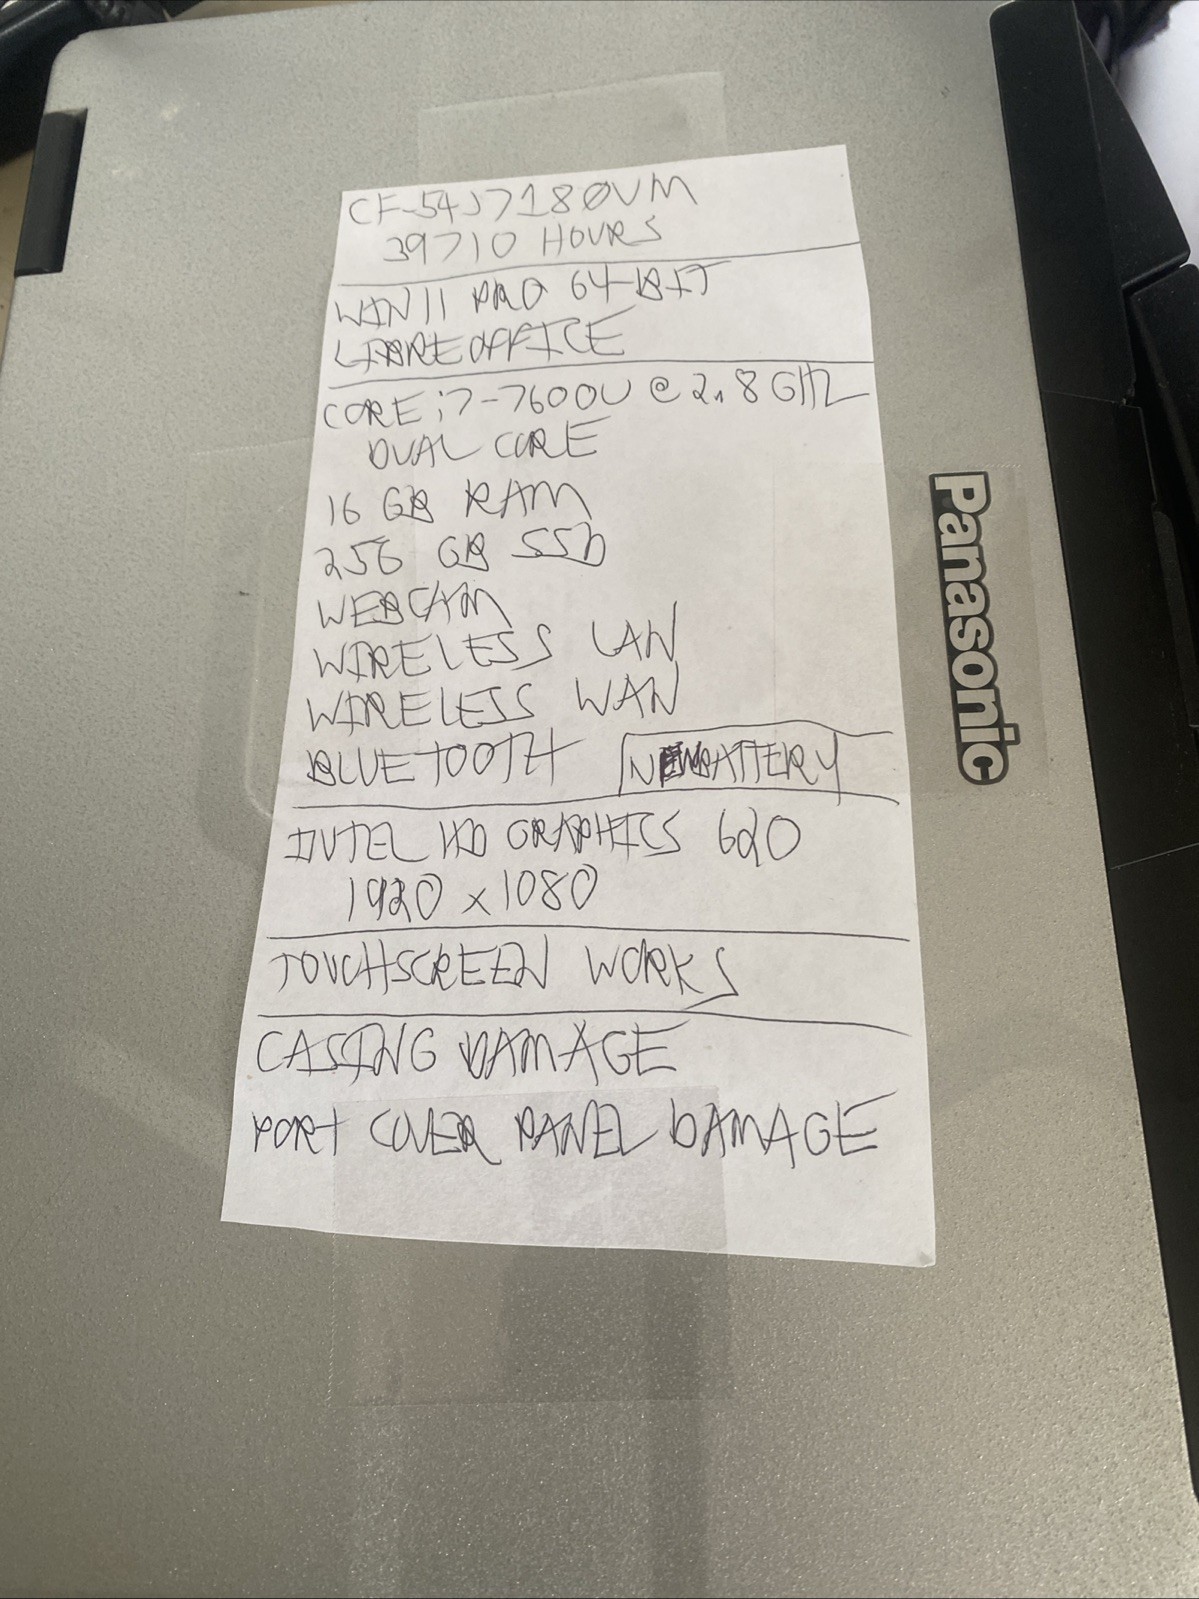 CF-54J7180VM
39710 HOURS
WIN11 PRO 64-BIT
LIBREOFFICE
CORE i7-7600U @ 2.8 GHZ
DUAL CORE
16 GB RAM
256 GB SSD
WEBCAM
WIRELESS LAN
WIRELESS WAN
BLUETOOTH
BATTERY
INTEL HD GRAPHICS 620
1920 x 1080
TOUCHSCREEN WORKS
CASING DAMAGE
PORT COVER PANEL DAMAGE
Panasonic